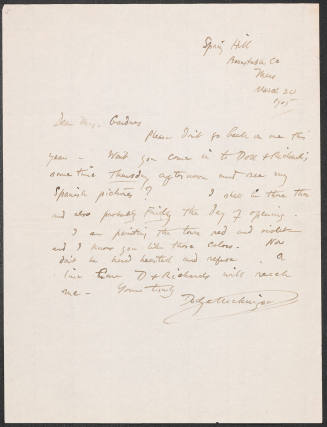 Spring Hill
Barnstable Co
Mass
March 20
1905
Dear Mrs. Gardner
Please don't go back on me this
year - Won't you come in to Doll & Richards
some time Thursday afternoon and see my
Spanish pictures? I shall be there then
and also probably Friday the day of opening.
I am painting the town red and violet
and I know you like those colors. Now
don't be hard hearted and refuse. A
line care D & Richards will reach
me - Yours truly
Dodge MacKnight